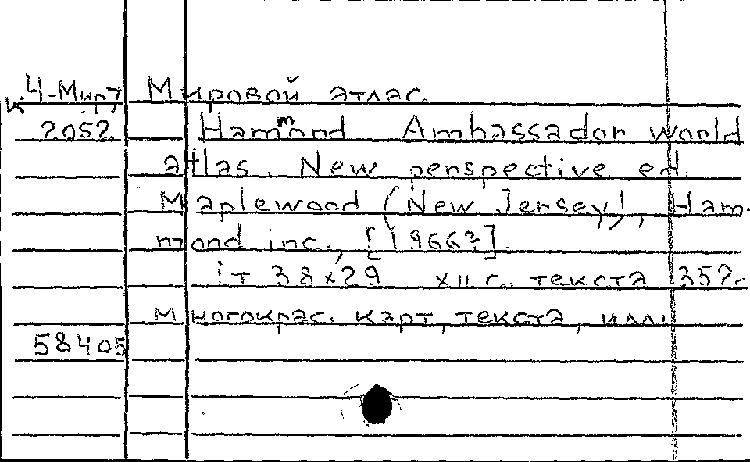 Ц-Мир7 Мировой атлас.
к 2052 Hammond Ambassador world
atlas. New perspective ed.
Maplewood (New Jersey), Ham-
mond inc., [1966?]
1т 38x29 XII с. текста 352с.
многокрас. карт, текста, илл.
58405